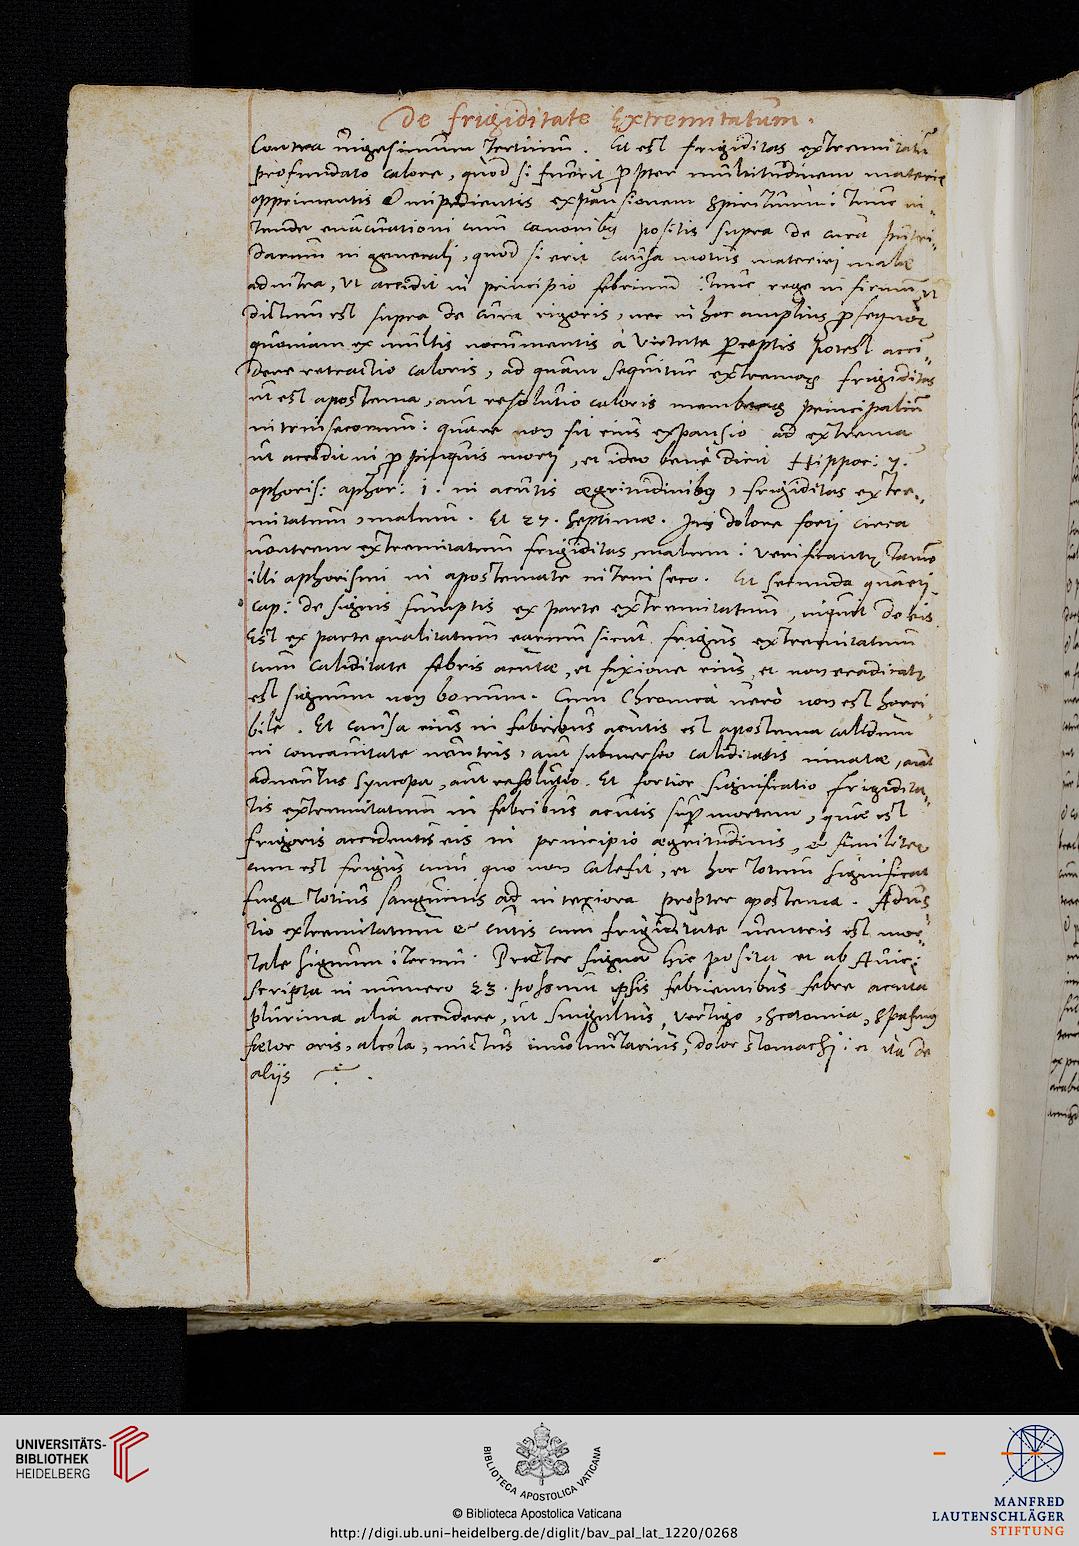 De frigiditate Extremitatum.
Contra uigesimum tertium. Et est frigiditas extremitatū
profundato calore, quod si fuerit ꝓpter multitudinem materię
opprimentis & impedientis expansionem spirituum: tunc in-
tende euacuationi cum canonibꝰ positis supra de cura putri-
darum in generali, quod si erit causa motus materiei malæ
ad intra, ut accidit in principio febrium: tunc rege in firmum, ut
dictum est supra de cura rigoris, nec in hoc amplius ꝓsequor
quoniam ex multis nocumentis à virtute perceptis potest acci-
dere retractio caloris, ad quam sequitur extremorꝫ frigiditas
ut est apostema, aut resolutio caloris membrorꝫ principaliū
intrinsecorum: quare non fit eius expansio ad extrema
ut accidit in ꝓpinquis morti, et ideo bene dicit Hippoc: 7.
aphoris: aphor: 1. in acutis ægritudinibꝰ, frigiditas extre-
mitatum, malum. Et 27. septimæ. dolore forti circa
uentrem extremitatum frigiditas, malum: verificantꝛ tamē
illi aphorismi in apostemate intrinseco. Et secunda quarti
cap: de signis sumptis ex parte extremitatum, inquit de his
Est ex parte qualitatum earum sicut frigus extremitatum
cum caliditate febris acutæ, et fixione eius, et non eradicatꝛ
est signum non bonum. Cum Chronica uerò non est horri-
bile. Et causa eius in febribus acutis est apostema calidum
in concauitate uentris, aut submersio caliditatis innatæ, aut
aduentus syncopa, aut resolutio. Et fortior significatio frigidita-
tis extremitatum in febribus acutis sup̄ mortem, quæ est
frigoris accidentis eis in principio ægritudinis, & similiter
cum est frigus cum quo non calefit, et hoc totum significat
fuga totius sanguinis ad interiora propter apostema. Adus-
tio extremitatum & cutis cum frigiditate uentris est mor-
tale signum: Præter signa hic posita et ab Auic:
scripta in numero 23. possunt ipsis febrientibus febre acuta
plurima alia accidere, ut singultus, vertigo, scotomia, spasmꝰ
fætor oris, alcola, mictus inuoluntarius, dolor stomachi: et ita de
aliis
UNIVERSITÄTS-
BIBLIOTHEK
HEIDELBERG
BIBLIOTECA APOSTOLICA VATICANA
© Biblioteca Apostolica Vaticana
http://digi.ub.uni-heidelberg.de/diglit/bav_pal_lat_1220/0268
MANFRED
LAUTENSCHLÄGER
STIFTUNG